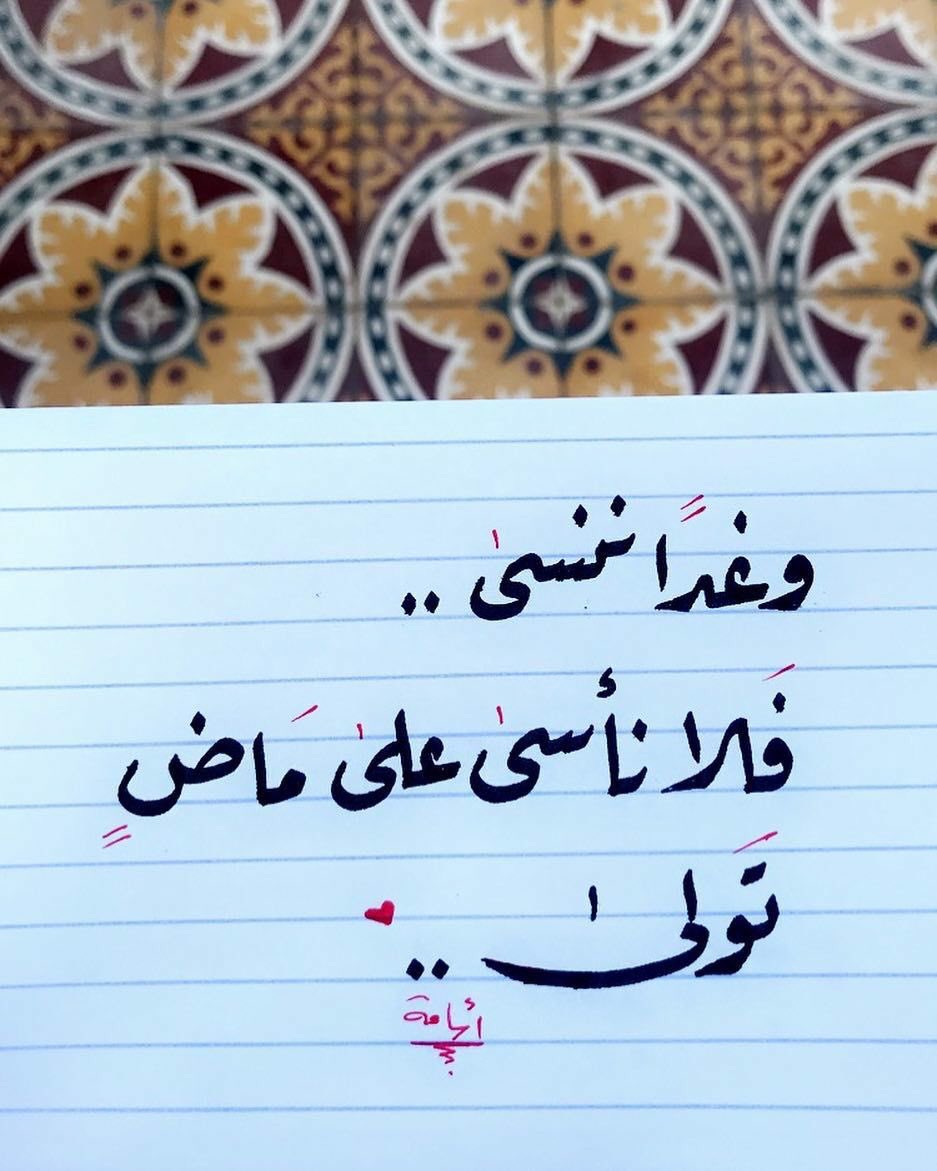 وغدًا ننسىٰ ..
فَلا نأسىٰ علىٰ مَاضٍ
تَولىٰ ..